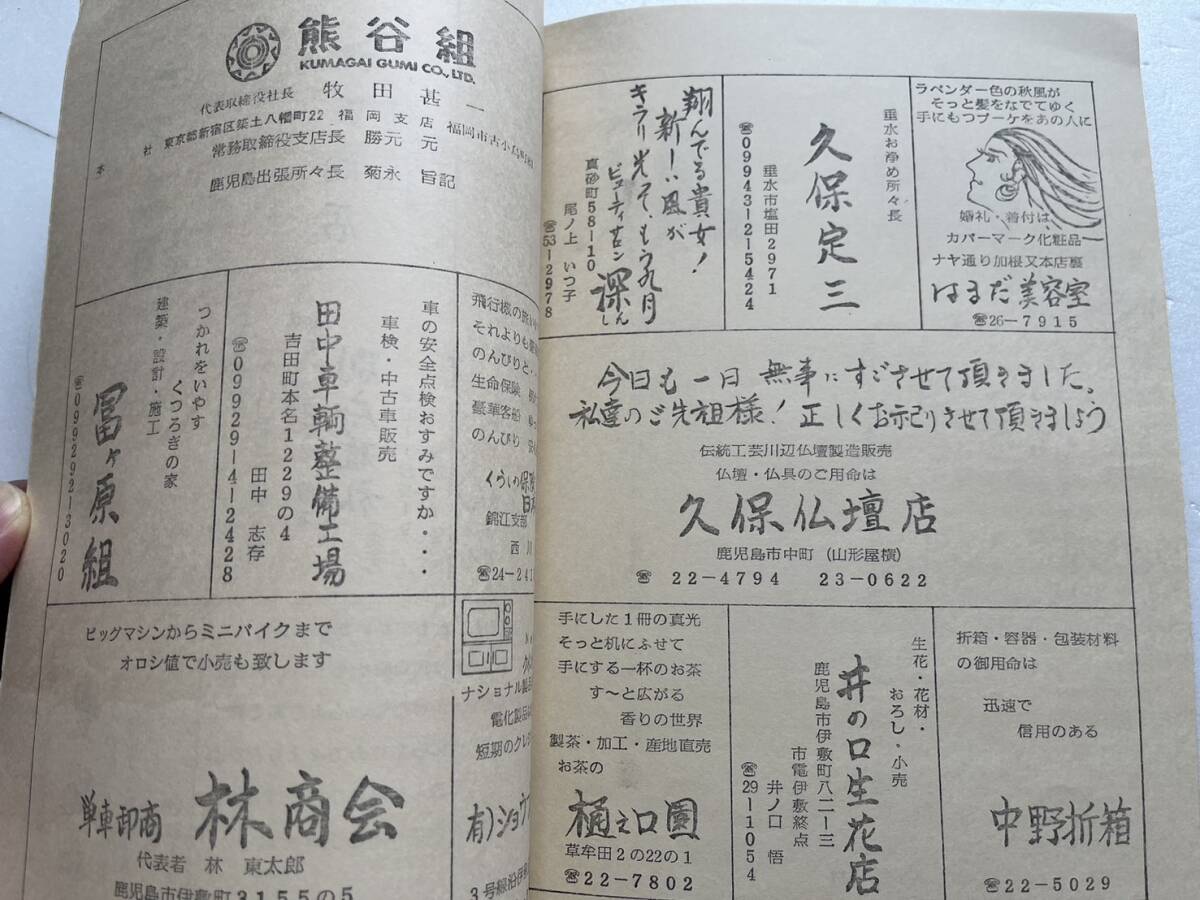 熊谷組
KUMAGAI GUMI CO., LTD.
代表取締役社長 牧田甚一
本社 東京都新宿区築土八幡町22 福岡支店 福岡市古小烏町
常務取締役支店長 勝元 元
鹿児島出張所々長 菊永 旨記
飛行機の旅
それよりも
のんびりと・・
生命保険
豪華客船
のんびり
くらしの保険
日本
錦江支部
西川
☎24-241
車の安全点検おすみですか・・・
車検・中古車販売
田中車輌整備工場
吉田町本名1229の4
田中 志存
☎09929-4-2428
つかれをいやす
くつろぎの家
建築・設計・施工
冨ヶ原組
☎09929-2-3020
ビッグマシンからミニバイクまで
オロシ値で小売も致します
単車卸商 林商会
代表者 林 東太郎
鹿児島市伊敷町3155の5
ナショナル製品
電化製品
短期のクレジ
有)ショウ
3号線沿伊
ラベンダー色の秋風が
そっと髪をなでてゆく
手にもつブーケをあの人に
婚礼・着付は
カバーマーク化粧品
ナヤ通り加根又本店裏
はるだ美容室
☎26-7915
垂水お浄め所々長
久保定三
垂水市塩田2971
☎09943-2-5424
翔んでる貴女!
新しい風が
キラリ光って、もう九月
ビューティサロン 深しん
真砂町58-10
尾ノ上 いつ子
☎53-2978
今日も一日 無事にすごさせて頂きました。
私達のご先祖様! 正しくお祀りさせて頂きましょう
伝統工芸川辺仏壇製造販売
仏壇・仏具のご用命は
久保仏壇店
鹿児島市中町(山形屋横)
☎ 22-4794 23-0622
折箱・容器・包装材料
の御用命は
迅速で
信用のある
中野折箱
☎22-5029
生花・花材・
おろし・小売
井の口生花店
鹿児島市伊敷町八二一三
市電伊敷終点
井ノ口 悟
☎29-1054
手にした1冊の真光
そっと机にふせて
手にする一杯のお茶
す〜と広がる
香りの世界
製茶・加工・産地直売
お茶の
樋之口園
草牟田2の22の1
☎22-7802